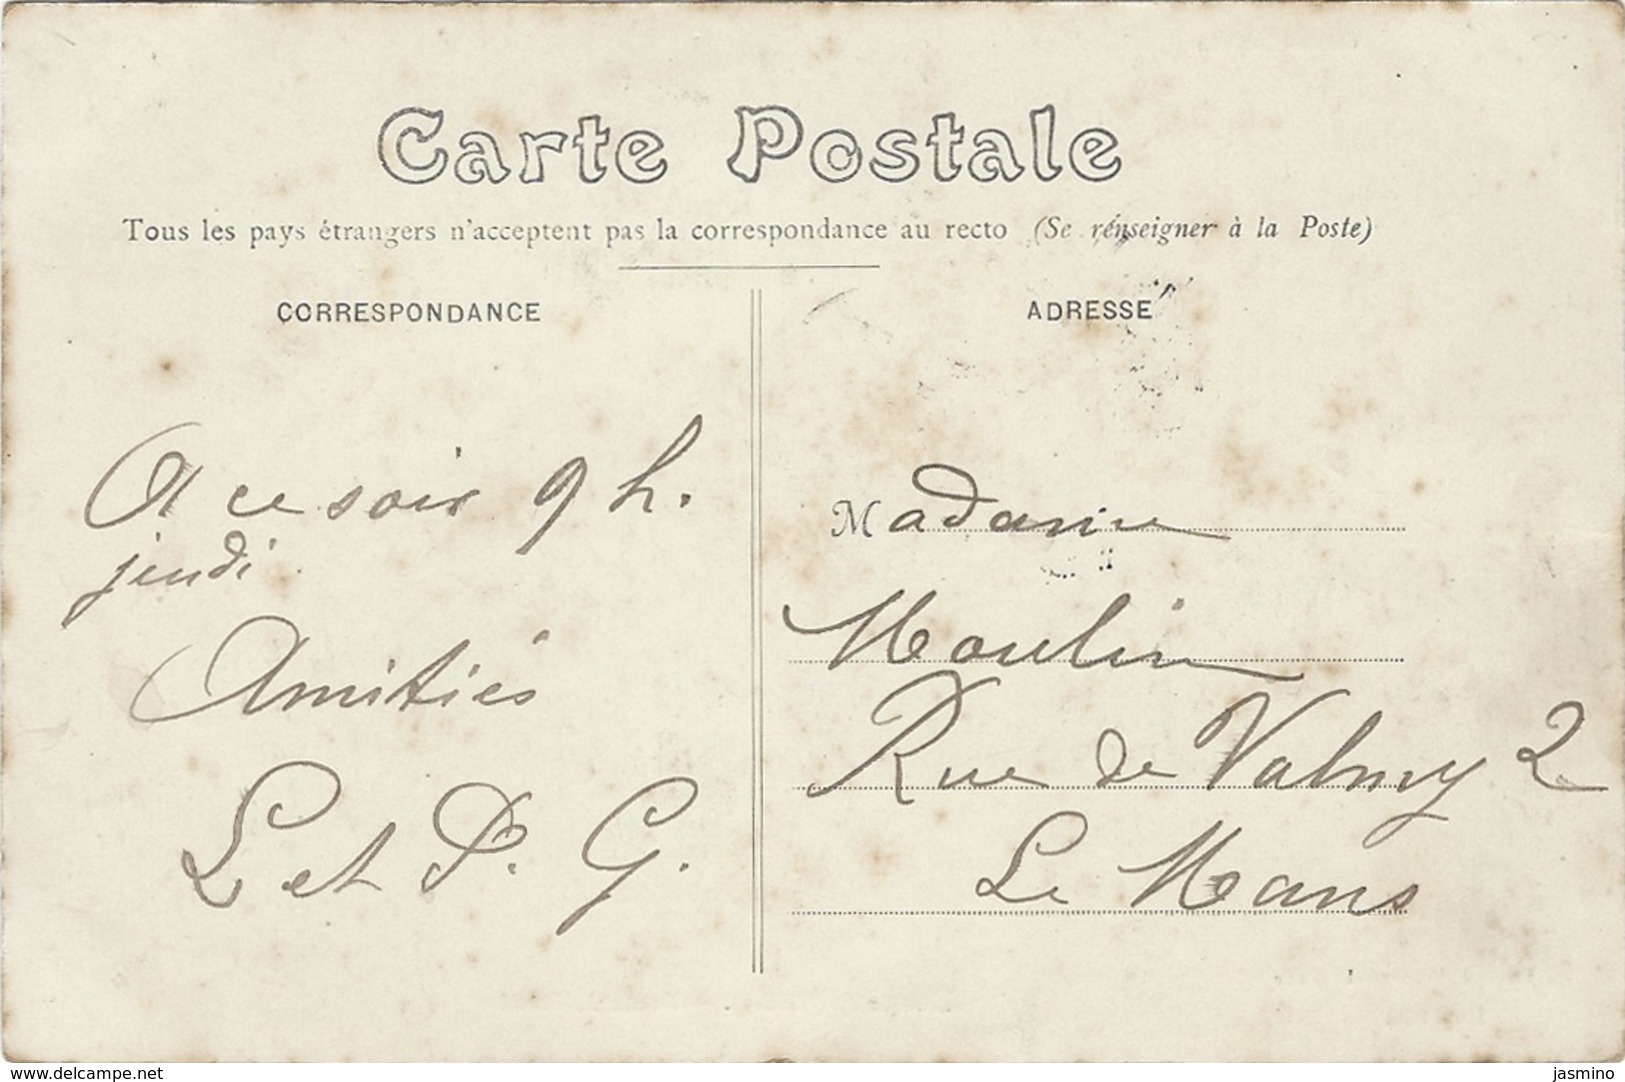 Carte Postale
Tous les pays étrangers n'acceptent pas la correspondance au recto (Se renseigner à la Poste)
CORRESPONDANCE
A ce soir 9 h.
jeudi
Amitiés
L et P. G.
ADRESSE
Madame
Moulin
Rue de Valmy 2
Le Mans
www.delcampe.net
jasmino